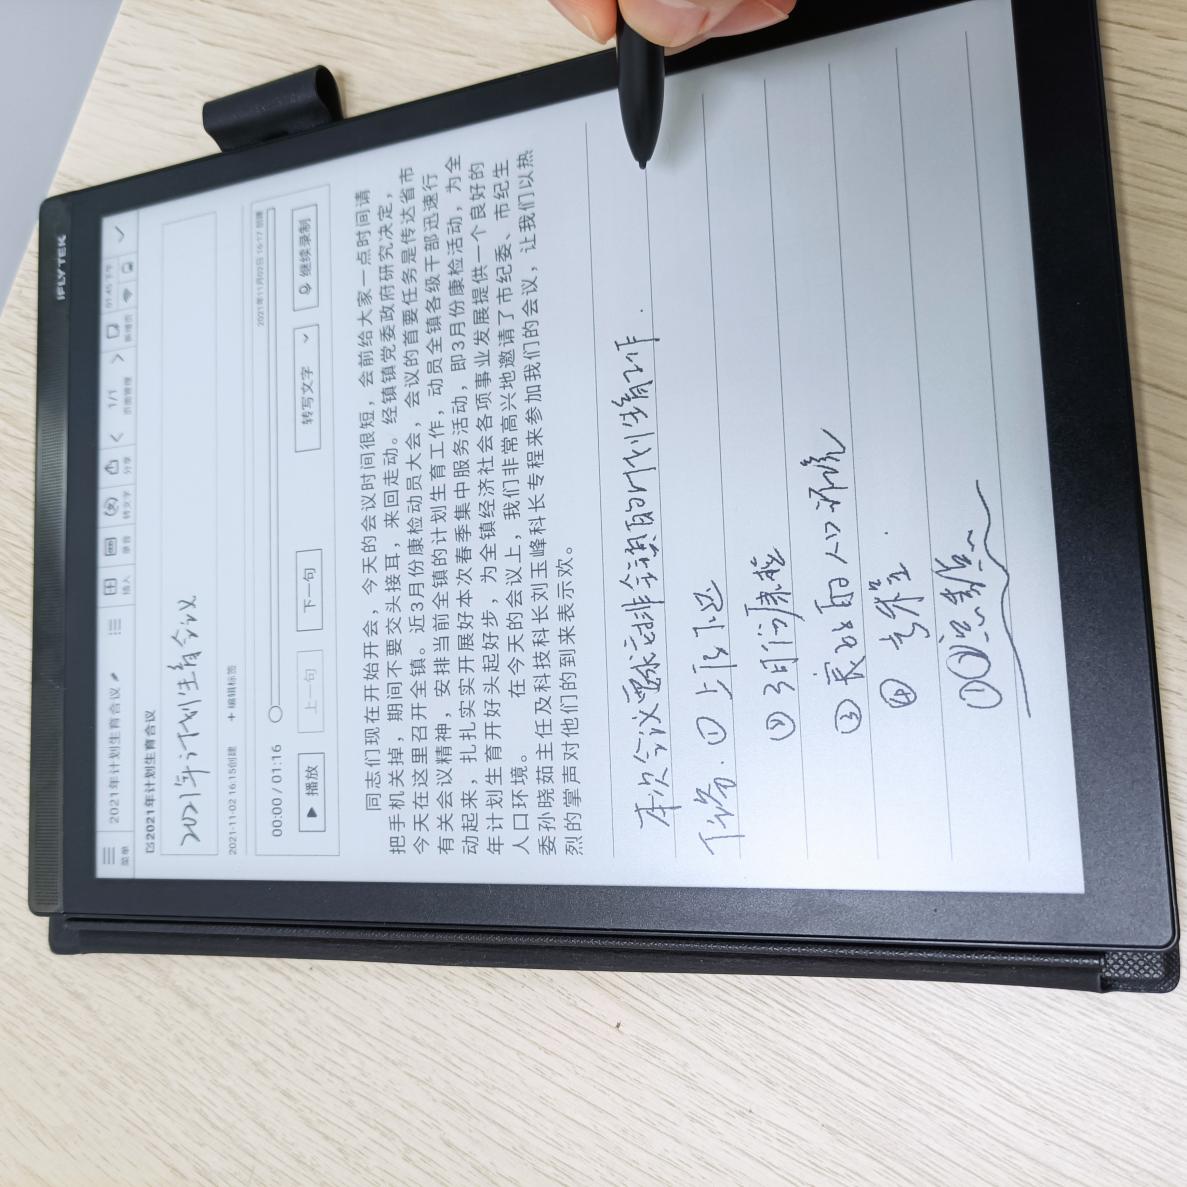 iFLYTEK
2021年计划生育会议
01:45 下午
菜单
插入
录音
转文字
分享
1/1
页面管理
新增页
2021年计划生育会议
2021年计划生育会议
2021-11-02 16:15创建
+ 编辑标签
00:00 / 01:16
2021年11月02日 16:17 创建
播放
上一句
下一句
转写文字
继续录制
同志们现在开始开会，今天的会议时间很短，会前给大家一点时间请
把手机关掉，期间不要交头接耳，来回走动。经镇镇党委政府研究决定，
今天在这里召开全镇。近3月份康检动员大会，会议的首要任务是传达省市
有关会议精神，安排当前全镇的计划生育工作，动员全镇各级干部迅速行
动起来，扎扎实实开展好本次春季集中服务活动，即3月份康检活动，为全
年计划生育开好头起好步，为全镇经济社会各项事业发展提供一个良好的
人口环境。 在今天的会议上，我们非常高兴地邀请了市纪委、市纪生
委孙晓茹主任及科技科长刘玉峰科长专程来参加我们的会议，让我们以热
烈的掌声对他们的到来表示欢。
本次会议要求安排全镇的计划生育工作.
任务. ① 上传下达
② 3月份康检
③ 良好的人口环境
④
①